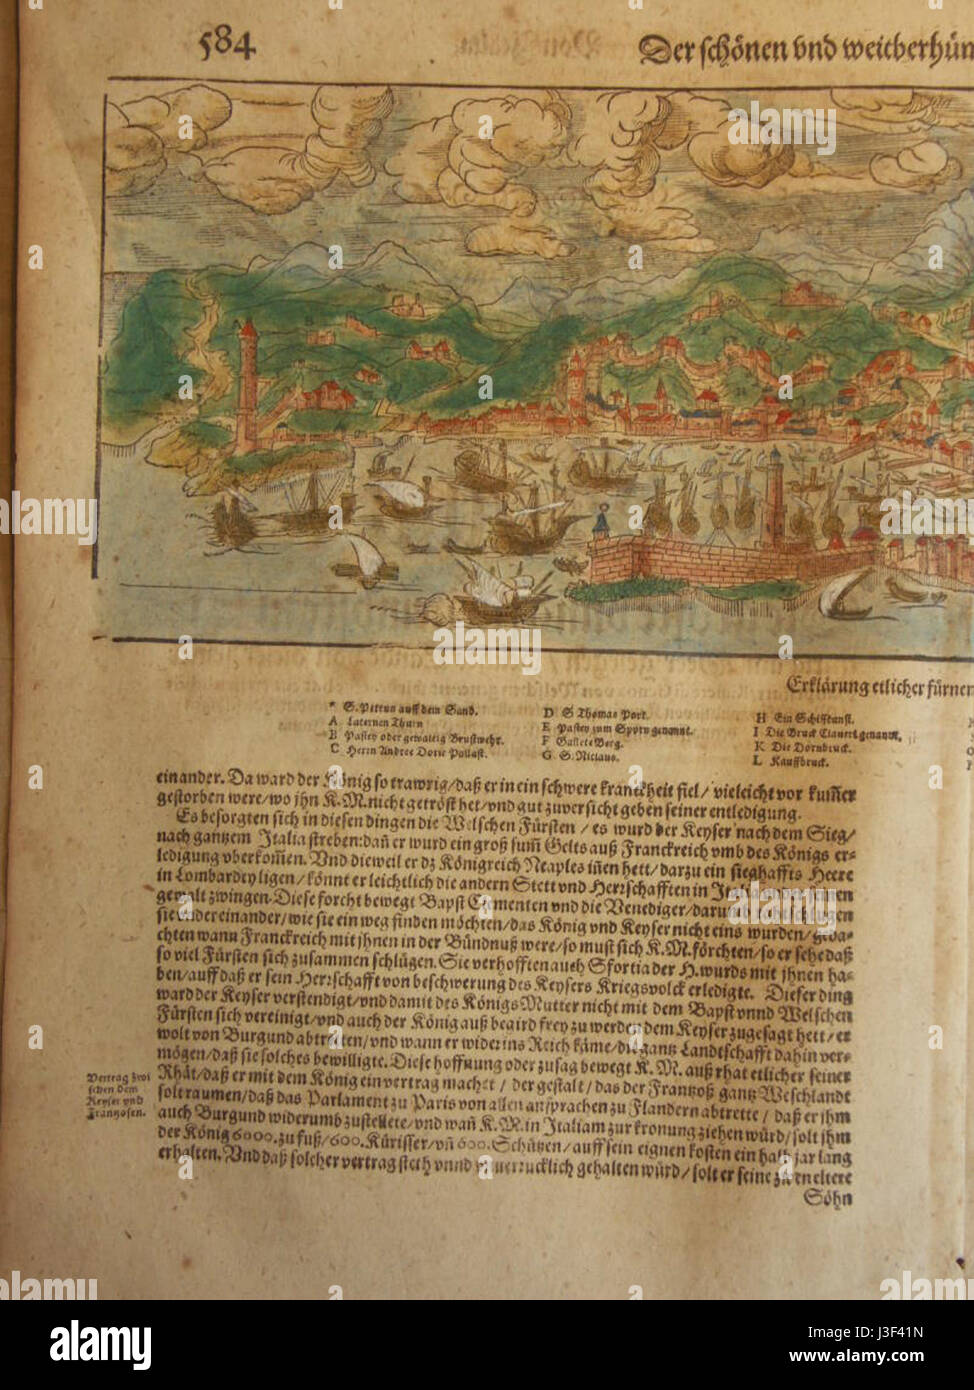 584
Der schönen vnd weitberhüm
Erklärung etlicher fürnem
* S. Petrus auff dem Sand.
A Laternen Thurn
B Pastey oder gewaltig Brustwehr.
C Herrn Andree Dorie Pallast.
D S Thomas Port.
E Pastey zum Sporn genannt.
F Gallete Berg.
G S. Niclaus.
H Ein Schifkunst.
I Die Bruck Clauerî genannt.
K Die Dornbruck.
L Kauffbruck.
einander. Da ward der König so trawrig/daß er in ein schwere kranckheit fiel/ vieleicht vor kum̃er
gestorben were/wo jhn K. M. nicht getröst het/vnd gut zuversicht geben seiner entledigung.
Es besorgten sich in diesen dingen die Welschen Fürsten/es wurd der Keyser nach dem Sieg/
nach gantzem Italia streben: dañ er wurd ein groß sum̃ Gelts auß Franckreich vmb des Königs er-
ledigung vberkom̃en. Vnd dieweil er dz Königreich Neaples iñen hett/darzu ein sieghaffts Heere
in Lombardey ligen/könnt er leichtlich die andern Stett vnd Herrschafften in Italia vnder seinen
gewalt zwingen. Diese forcht bewegt Bapst Clementen vnd die Venediger/darumb rahtschlugen
sie vndereinander/wie sie ein weg finden möchten/das König vnd Keyser nicht eins wurden/gedach-
chten wann Franckreich mit jhnen in der Bündnuß were/so must sich K. M. förchten/so er sehe daß
so viel Fürsten sich zusammen schlügen. Sie verhofften auch Sfortia der H. wurds mit jhnen ha-
ben/auff daß er sein Herrschafft von beschwerung des Keysers Kriegsvolck erledigte. Dieser ding
ward der Keyser verstendigt/vnd damit des Königs Mutter nicht mit dem Bapst vnnd Welschen
Fürsten sich vereinigt/vnd auch der König auß begird frey zu werden dem Keyser zugesagt hett/er
wolt von Burgund abtretten/vnd wann er wider ins Reich käme/die gantz Landtschafft dahin ver-
mögen/daß sie solches bewilligte. Diese hoffnung oder zusag bewegt K. M. auß rhat etlicher seiner
Rhät/daß er mit dem König ein vertrag machet/der gestalt/das der Frantzoß gantz Weschlandt
solt raumen/daß das Parlament zu Paris von allen ansprachen zu Flandern abtrette/daß er jhm
auch Burgund widerumb zustellete/vnd wañ K. M. in Italiam zur kronung ziehen würd/solt jhm
der König 6000. zu fuß/600. Kürisser/vñ 600. Schützen/auff sein eignen kosten ein halb jar lang
erhalten. Vnd daß solcher vertrag steth vnnd vnuerrucklich gehalten würd/solt er seine zween eltere
Söhn
Vertrag zwi
schen dem
Keyser vnd
Frantzosen.
alamy
a
alamy
Image ID: J3F41N
www.alamy.com